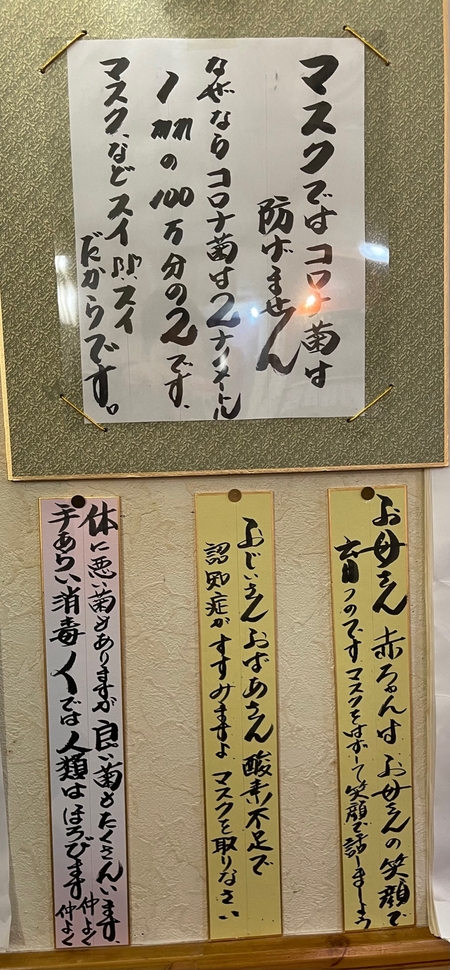 マスクではコロナ菌は
防げません
なぜならコロナ菌は2ナノメートル
1mmの100万分の2です、
マスクなどスイスイ
だからです。
お母さん 赤ちゃんは お母さんの笑顔で
育つのです マスクをはずして笑顔で話しましょう
おじいさん おばあさん 酸素不足で
認知症が すすみますよ マスクを取りなさい
体に悪い菌もありますが 良い菌もたくさんいます、仲よく
手あらい消毒 では 人類は ほろびます 仲よく